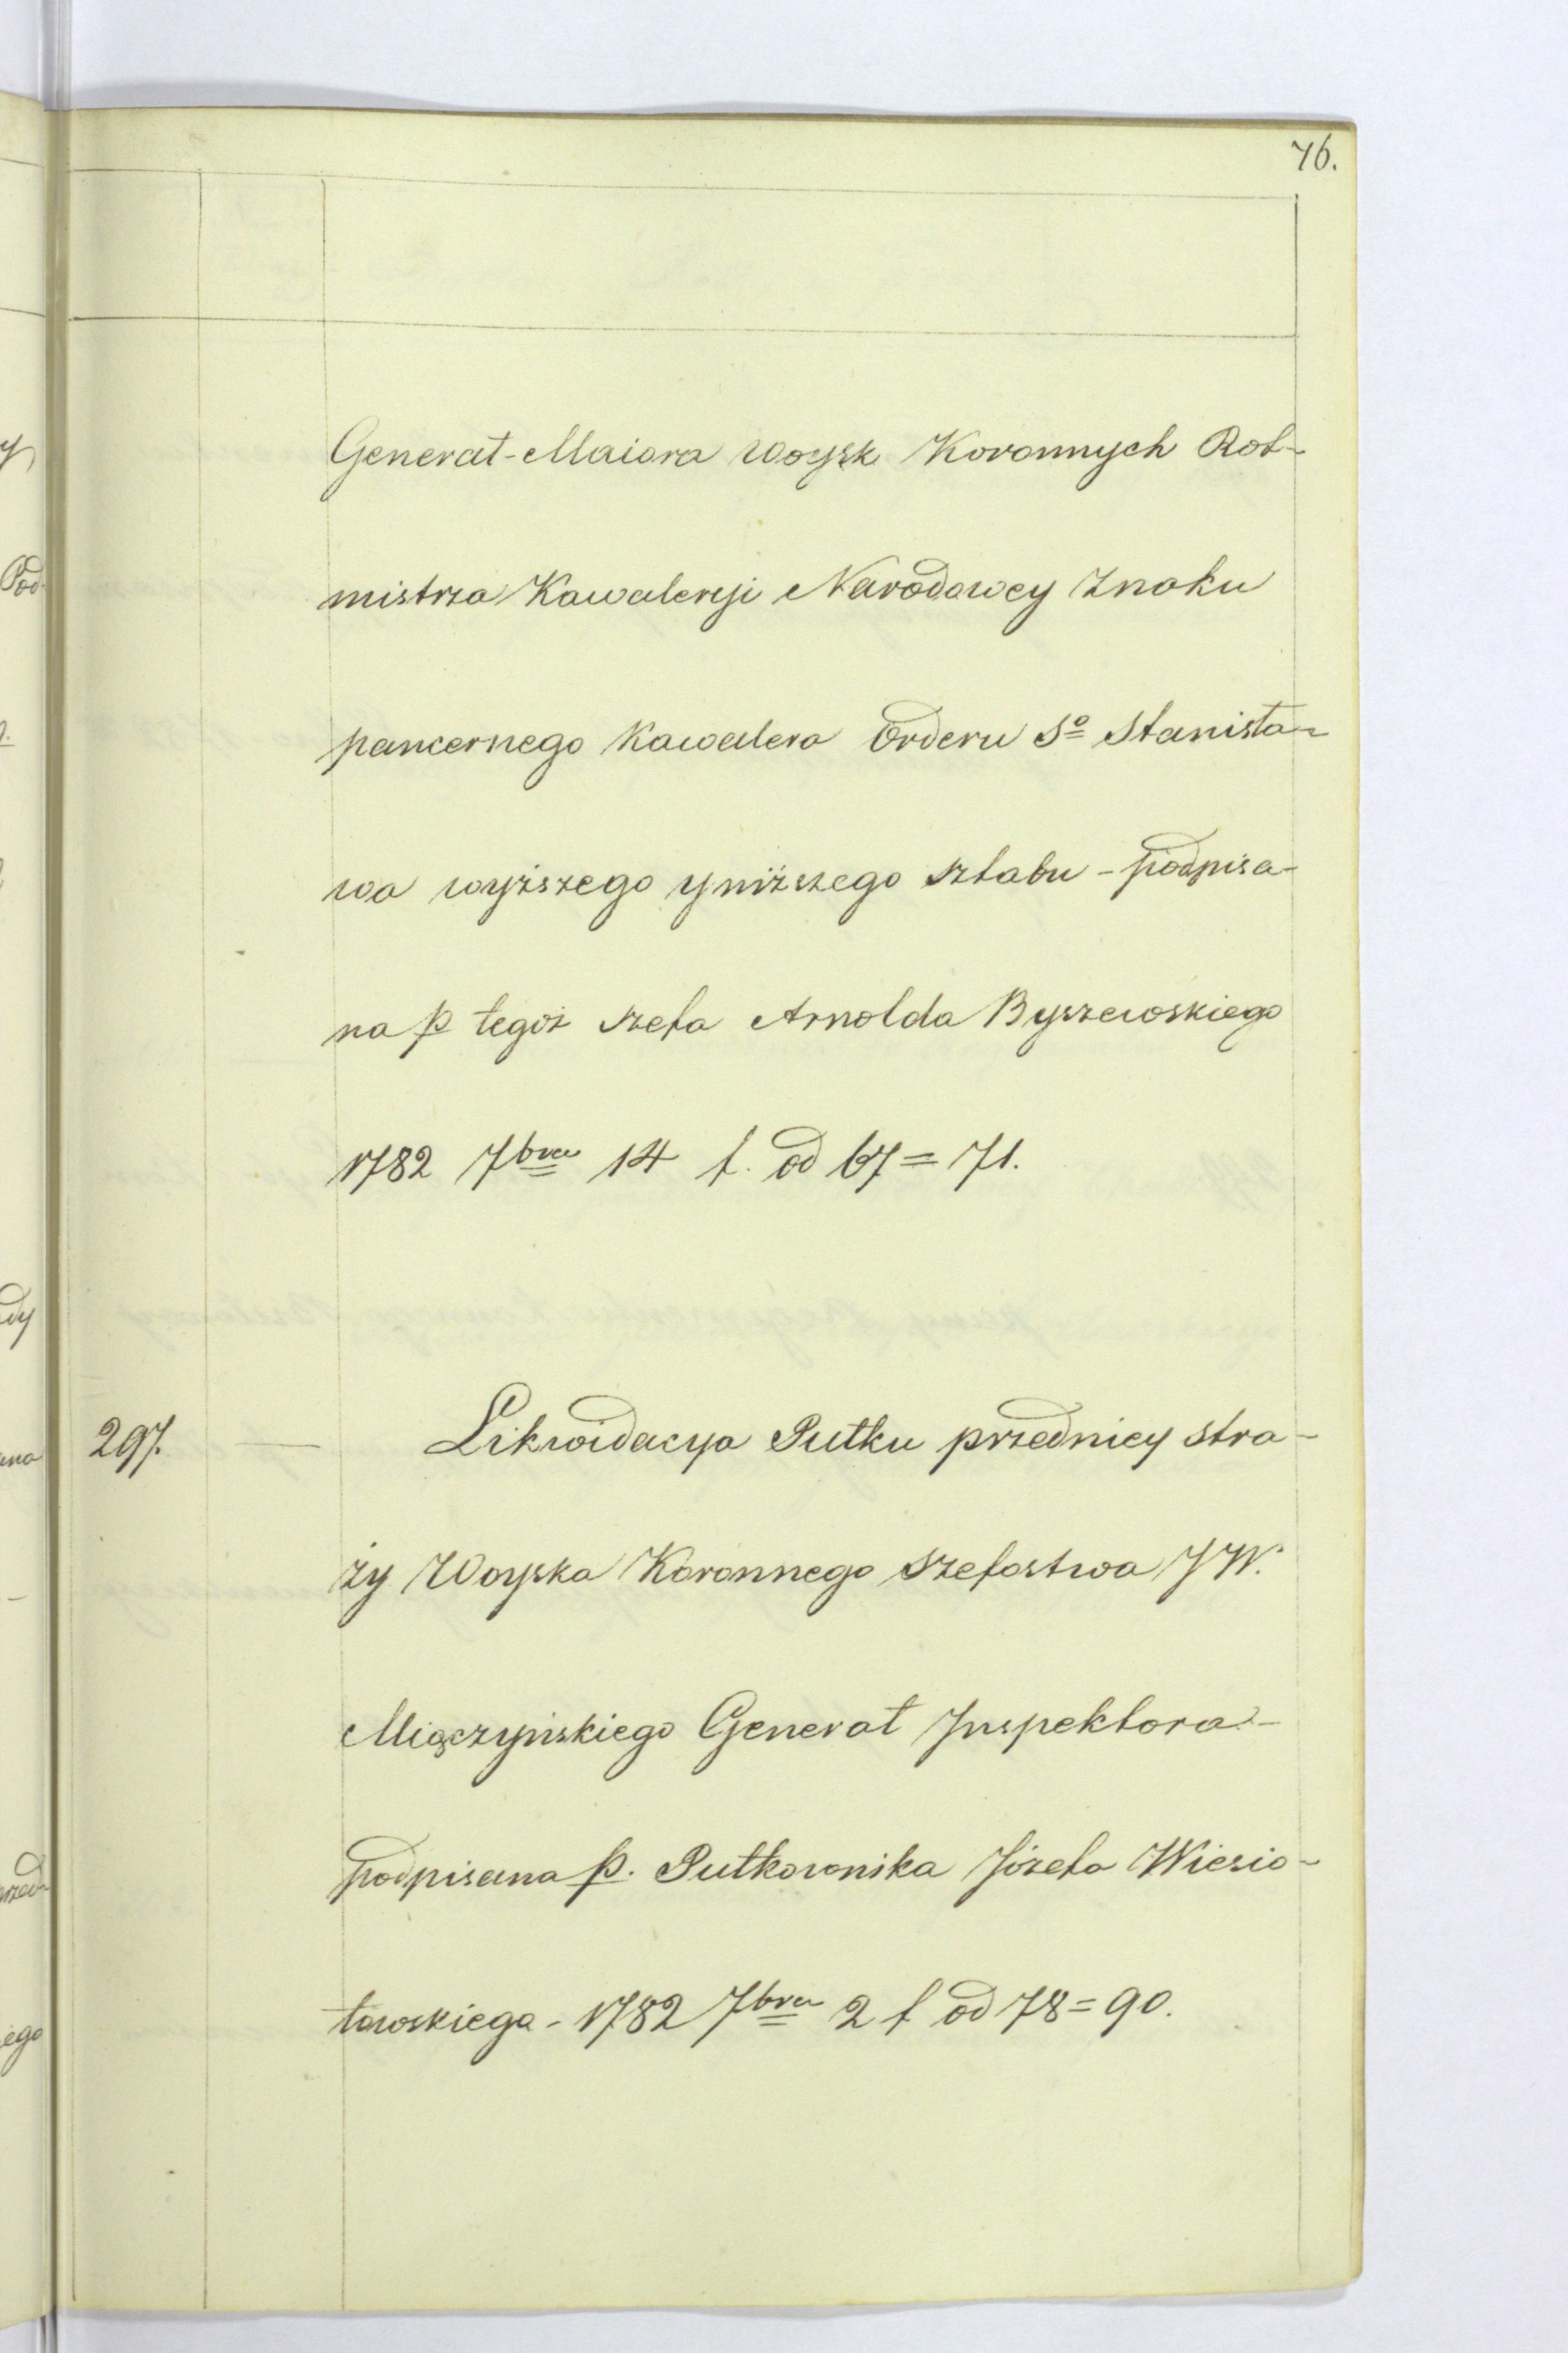 76.
Generał-Maiora Woysk Koronnych Rot-
mistrza Kawaleryi Narodowey Znaku
pancernego Kawalera Orderu So Stanisła-
wa wyższego y niższego sztabu - podpisa-
na p tegoż szefa Arnolda Byszewskiego
1782 7bra 14 f. od 67 = 71.
297. — Likwidacya Pułku przedniey stra-
ży Woyska Koronnego szefostwa JW.
Miączyńskiego Generał Inspektora -
podpisana p. Pułkownika Józefa Wiesio-
łowskiego - 1782 7bra 2 f od 78 = 90.